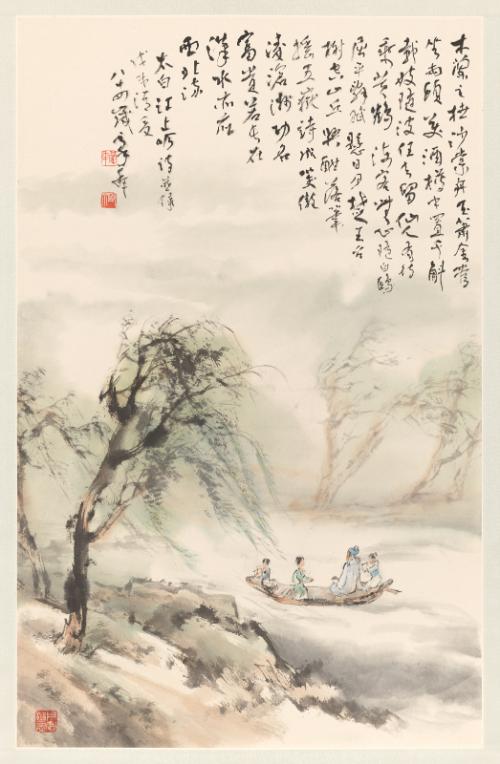 木蘭之枻沙棠舟玉簫金管
坐兩頭美酒樽中置千斛
載妓隨波任去留仙人有待
乘黃鶴海客無心隨白鷗
屈平辭賦懸日月楚王台
榭空山丘興酣落筆
搖五嶽詩成笑傲
凌滄洲功名
富貴若長在
漢水亦應
西北流
太白江上吟詩
清夏
八十四歲